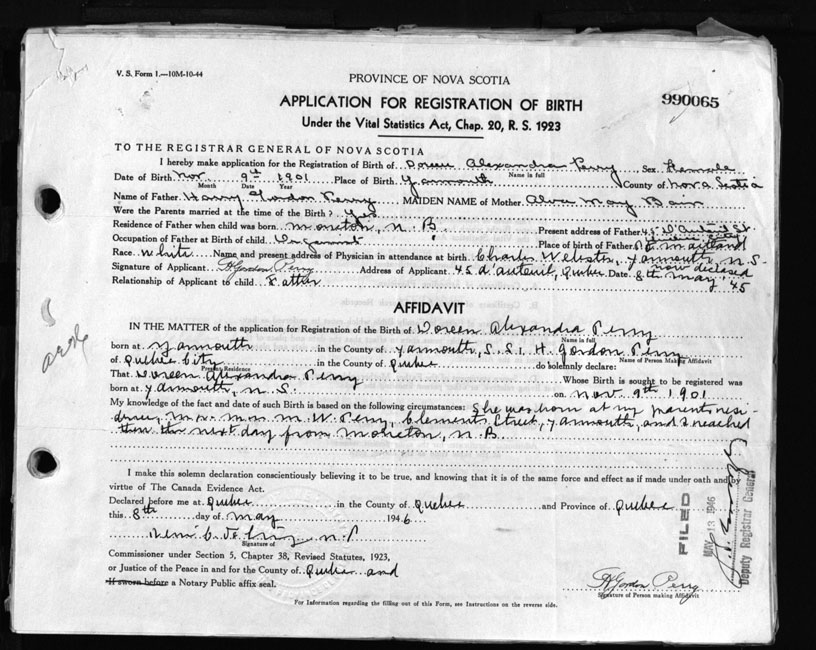 V. S. Form 1.—10M-10-44
PROVINCE OF NOVA SCOTIA
APPLICATION FOR REGISTRATION OF BIRTH
990065
Under the Vital Statistics Act, Chap. 20, R. S. 1923
TO THE REGISTRAR GENERAL OF NOVA SCOTIA
I hereby make application for the Registration of Birth of Doreen Alexandra Perry Sex Female
Name in full
Date of Birth Nov. 9th 1901 Place of Birth Yarmouth County of Nova Scotia
Month Date Year
Name of Father Harry Gordon Perry MAIDEN NAME of Mother Alva May Bain
Were the Parents married at the time of the Birth? Yes
Residence of Father when child was born Moncton, N. B. Present address of Father 45 D'Auteuil St.
Occupation of Father at Birth of child Place of birth of Father Maitland
Race White Name and present address of Physician in attendance at birth Charles Webster, Yarmouth, N. S.
now deceased
Signature of Applicant H Gordon Perry Address of Applicant 45 d'Auteuil, Quebec Date 8th May '45
Relationship of Applicant to child Father
AFFIDAVIT
IN THE MATTER of the application for Registration of the Birth of Doreen Alexandra Perry
Name in full
born at Yarmouth in the County of Yarmouth, S. S. I, H. Gordon Perry
Name of Person making Affidavit
of Quebec City in the County of Quebec do solemnly declare:
Present Residence
That Doreen Alexandra Perry Whose Birth is sought to be registered was
born at Yarmouth, N. S. on Nov. 9th 1901
My knowledge of the fact and date of such Birth is based on the following circumstances: She was born at my parents resi-
dence, Mr. M. W. Perry, Clements Street, Yarmouth, and I reached
there the next day from Moncton, N. B.
I make this solemn declaration conscientiously believing it to be true, and knowing that it is of the same force and effect as if made under oath and by
virtue of The Canada Evidence Act.
Declared before me at Quebec in the County of Quebec and Province of Quebec
this 8th day of May 1946
Signature of
Commissioner under Section 5, Chapter 38, Revised Statutes, 1923,
or Justice of the Peace in and for the County of Quebec and
If sworn before a Notary Public affix seal.
H Gordon Perry
Signature of Person making Affidavit
For Information regarding the filling out of this Form, see Instructions on the reverse side.
FILED
MAY 13 1946
Deputy Registrar General